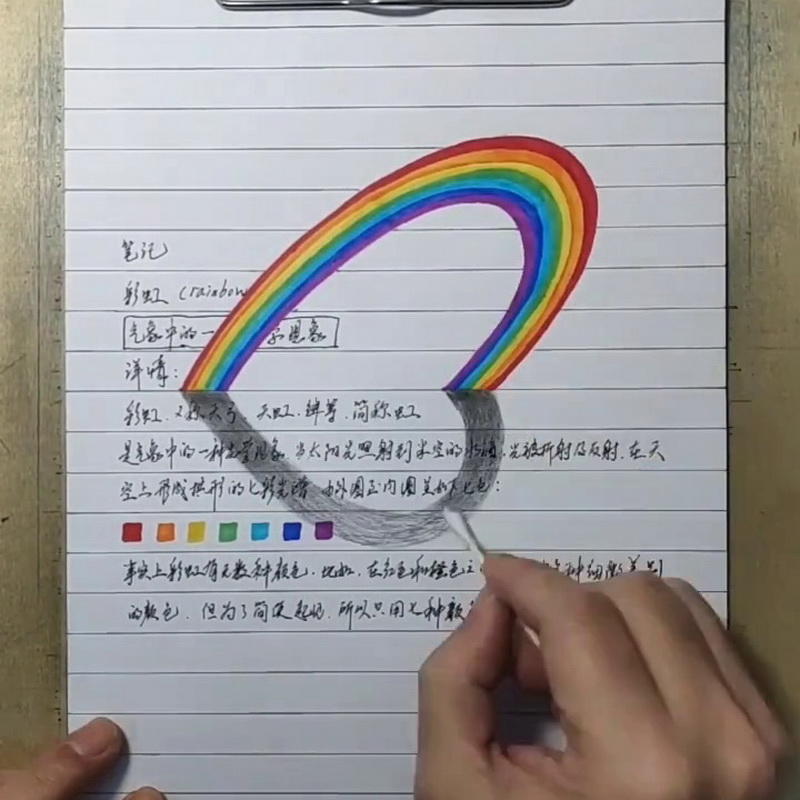 笔记
彩虹 (rainbow
气象中的一 学现象
详情:
彩虹、又称天弓、天虹、绛等、简称虹
是气象中的一种光学现象、当太阳光照射到半空的水滴,光被折射及反射、在天
空上形成拱形的七彩光谱 由外圈至内圈 七色:
事实上彩虹有无数种颜色、比如、在红色和橙色之 种细微差别
的颜色、但为了简便起见、所以只用七种颜